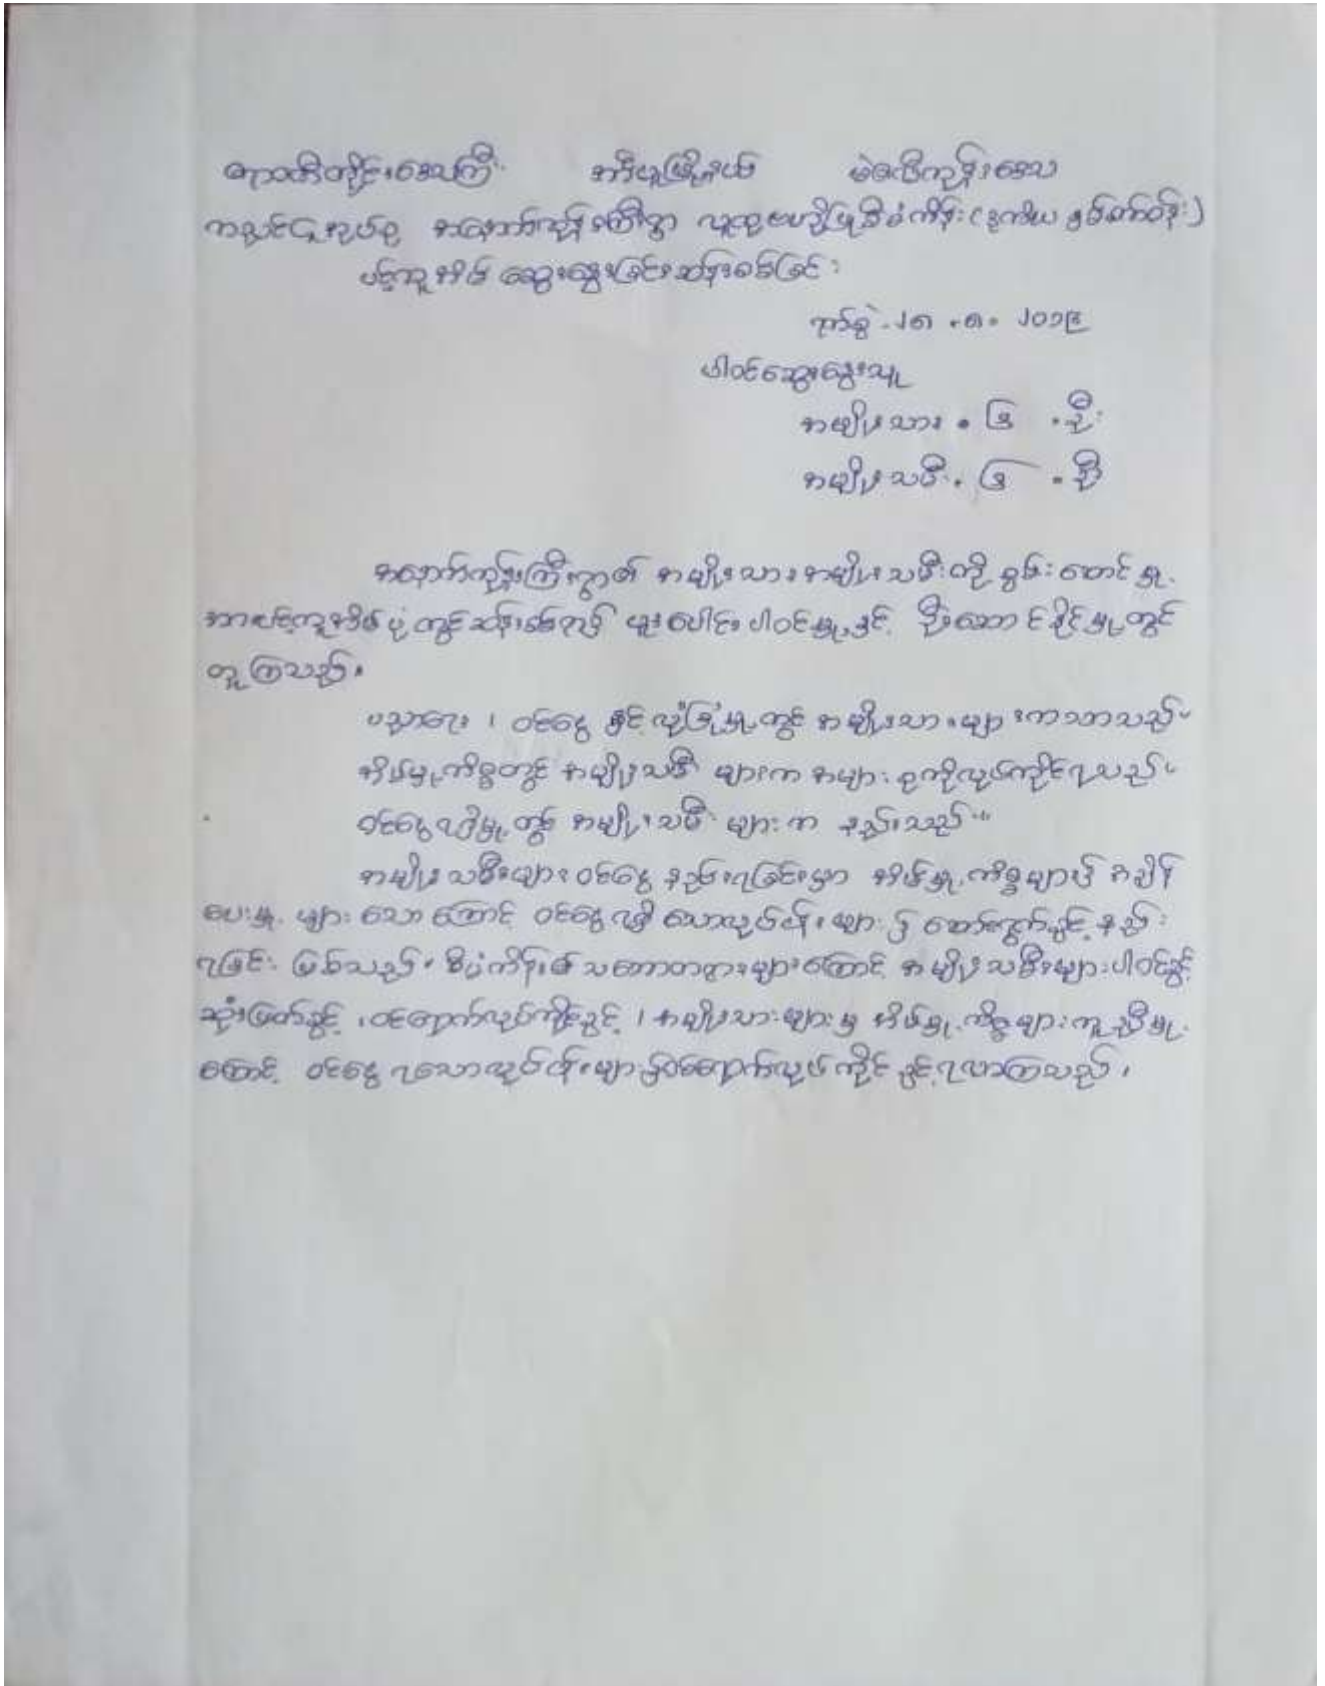 ဧရာဝတီတိုင်းဒေသကြီး အင်္ဂပူမြို့နယ် မဲဇလီကုန်းဒေသ
ကညင်ငူအုပ်စု အနောက်ကုန်းကြီးရွာ လူထုဗဟိုပြုစီမံကိန်း (ဒုတိယနှစ်ပတ်ဝန်း)
ပင့်ကူအိမ် ဆွေးနွေးခြင်းဆန်းစစ်ခြင်း
ရက်စွဲ - ၂၈ . ၈ . ၂၀၁၉
ပါဝင်ဆွေးနွေးသူ
အမျိုးသား - ဦး
အမျိုးသမီး - ဦး
အနောက်ကုန်းကြီးရွာ၏ အမျိုးသားအမျိုးသမီးတို့ စွမ်းဆောင်မှု
အားပင့်ကူအိမ်ပုံတွင်ဆန်းစစ်ရာ၌ ပူးပေါင်းပါဝင်မှုနှင့် ဦးဆောင်နိုင်မှုတွင်
တူကြသည်။
ပညာရေး၊ ဝင်ငွေနှင့်လုံခြုံမှုတွင် အမျိုးသားများကသာသည်။
အိမ်မှုကိစ္စတွင် အမျိုးသမီးများက အများစုကိုလုပ်ကိုင်ရသည်။
ဝင်ငွေရရှိမှုတွင် အမျိုးသမီးများက နည်းသည်။
အမျိုးသမီးများဝင်ငွေ နည်းရခြင်းမှာ အိမ်မှုကိစ္စများ၌ အချိန်
ပေးမှု များသောကြောင့် ဝင်ငွေရရှိသောလုပ်ငန်းများ၌ ဆောင်ရွက်ခွင့်နည်း
ရခြင်း ဖြစ်သည်။ စီမံကိန်း၏သဘောတရားများကြောင့် အမျိုးသမီးများပါဝင်ခွင့်
ဆုံးဖြတ်ခွင့်၊ ဝင်ရောက်လုပ်ကိုင်ခွင့်၊ အမျိုးသားများမှ အိမ်မှုကိစ္စများကူညီမှု
ကြောင့် ဝင်ငွေရသောလုပ်ငန်းများ၌ဝင်ရောက်လုပ်ကိုင်ခွင့်ရလာကြသည်။